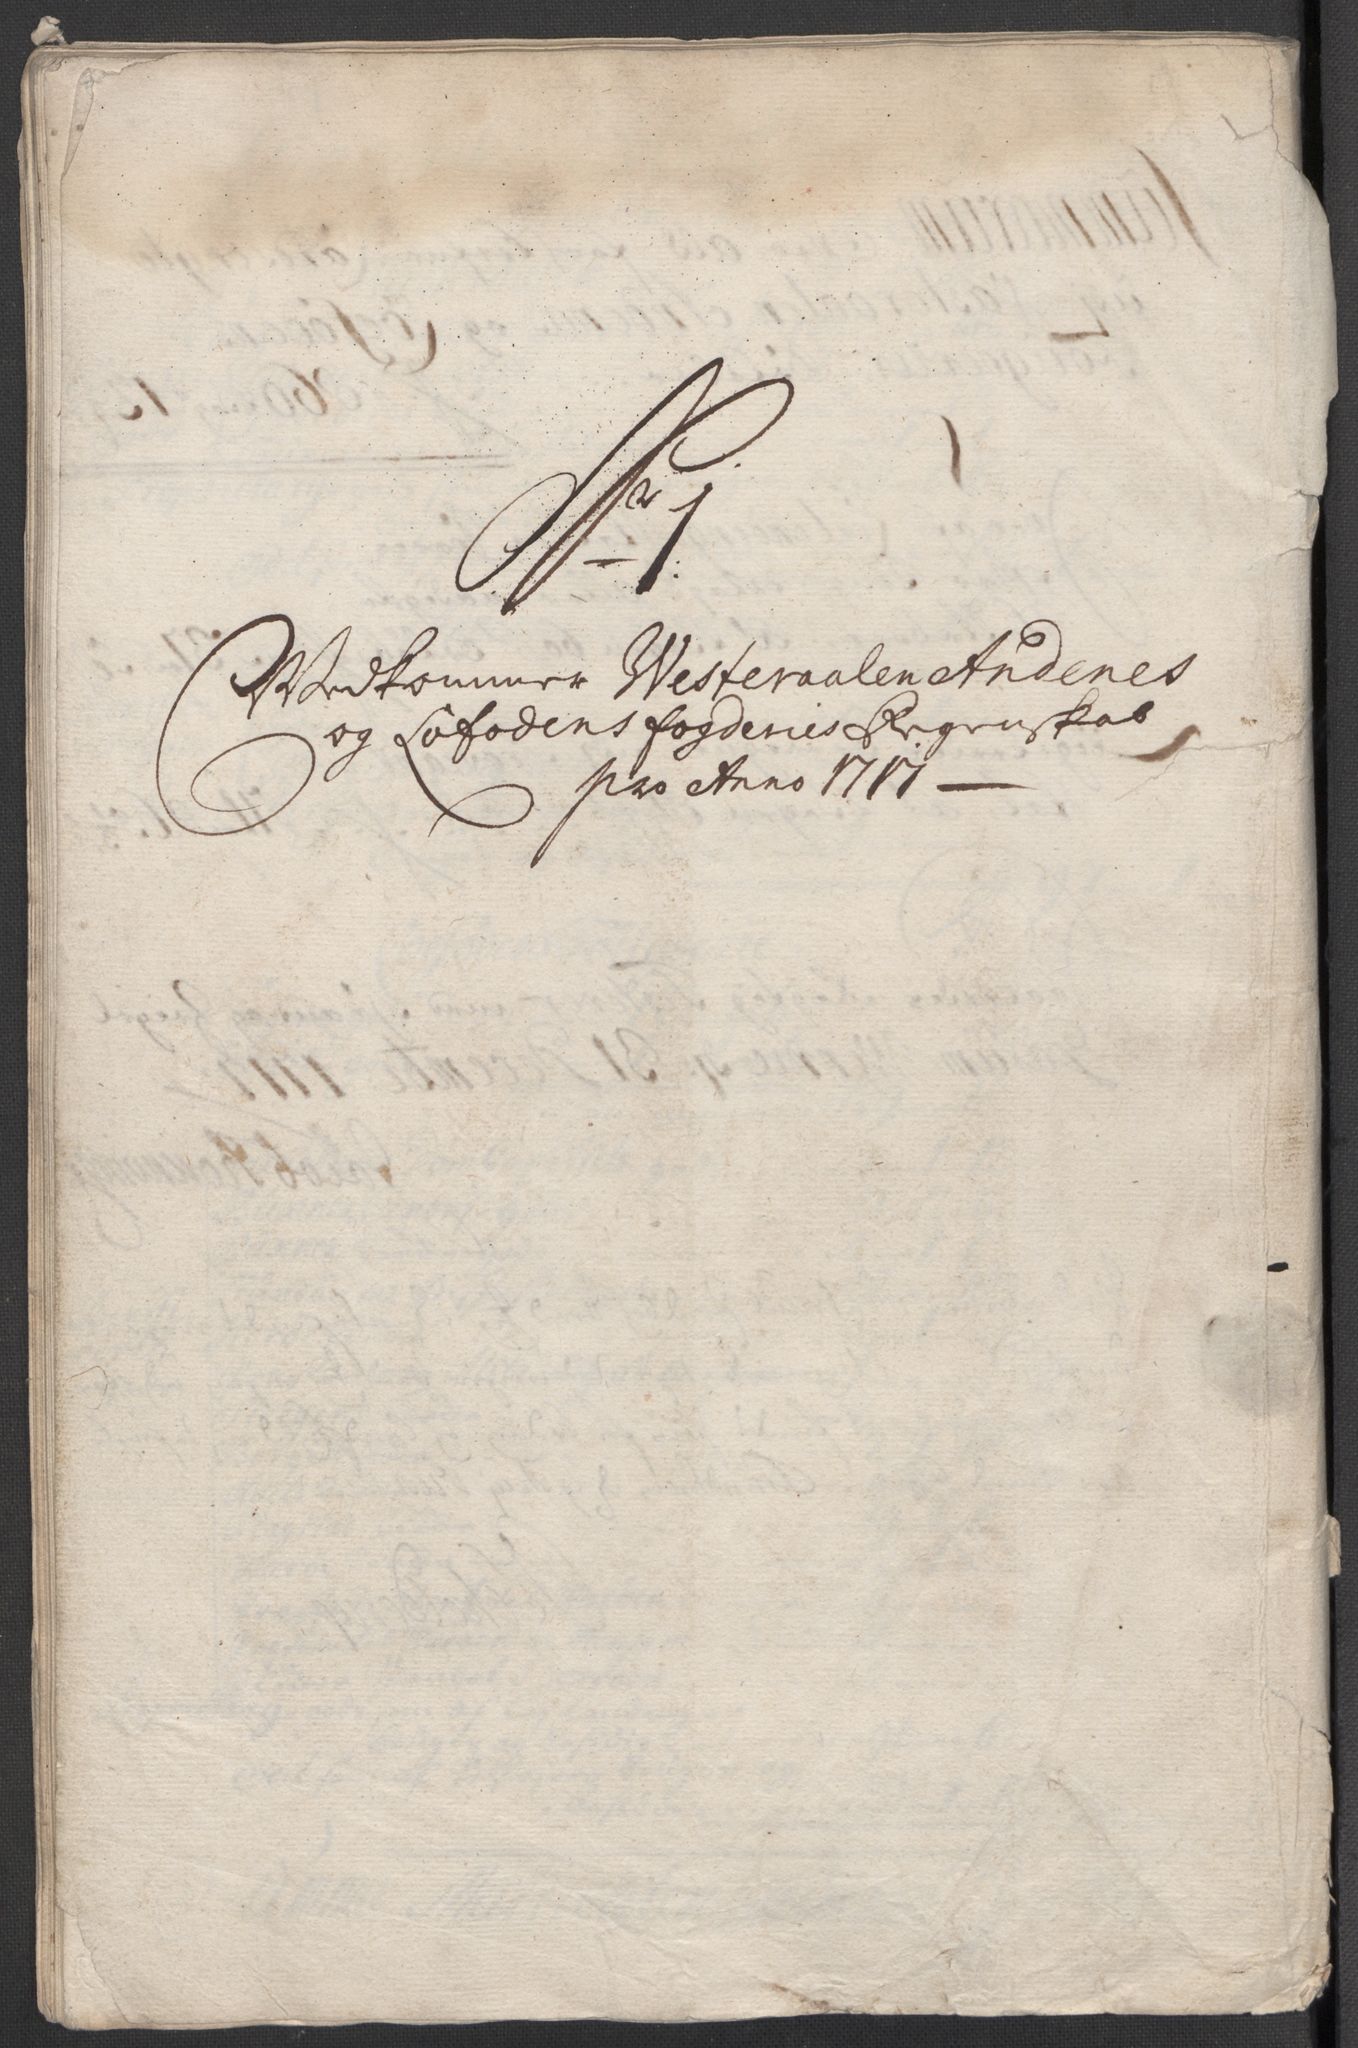 Nr 1.
Wedkommer Westeraalen Andenes
og Lofodens fogderies Regenskab
pro Anno 1717 —